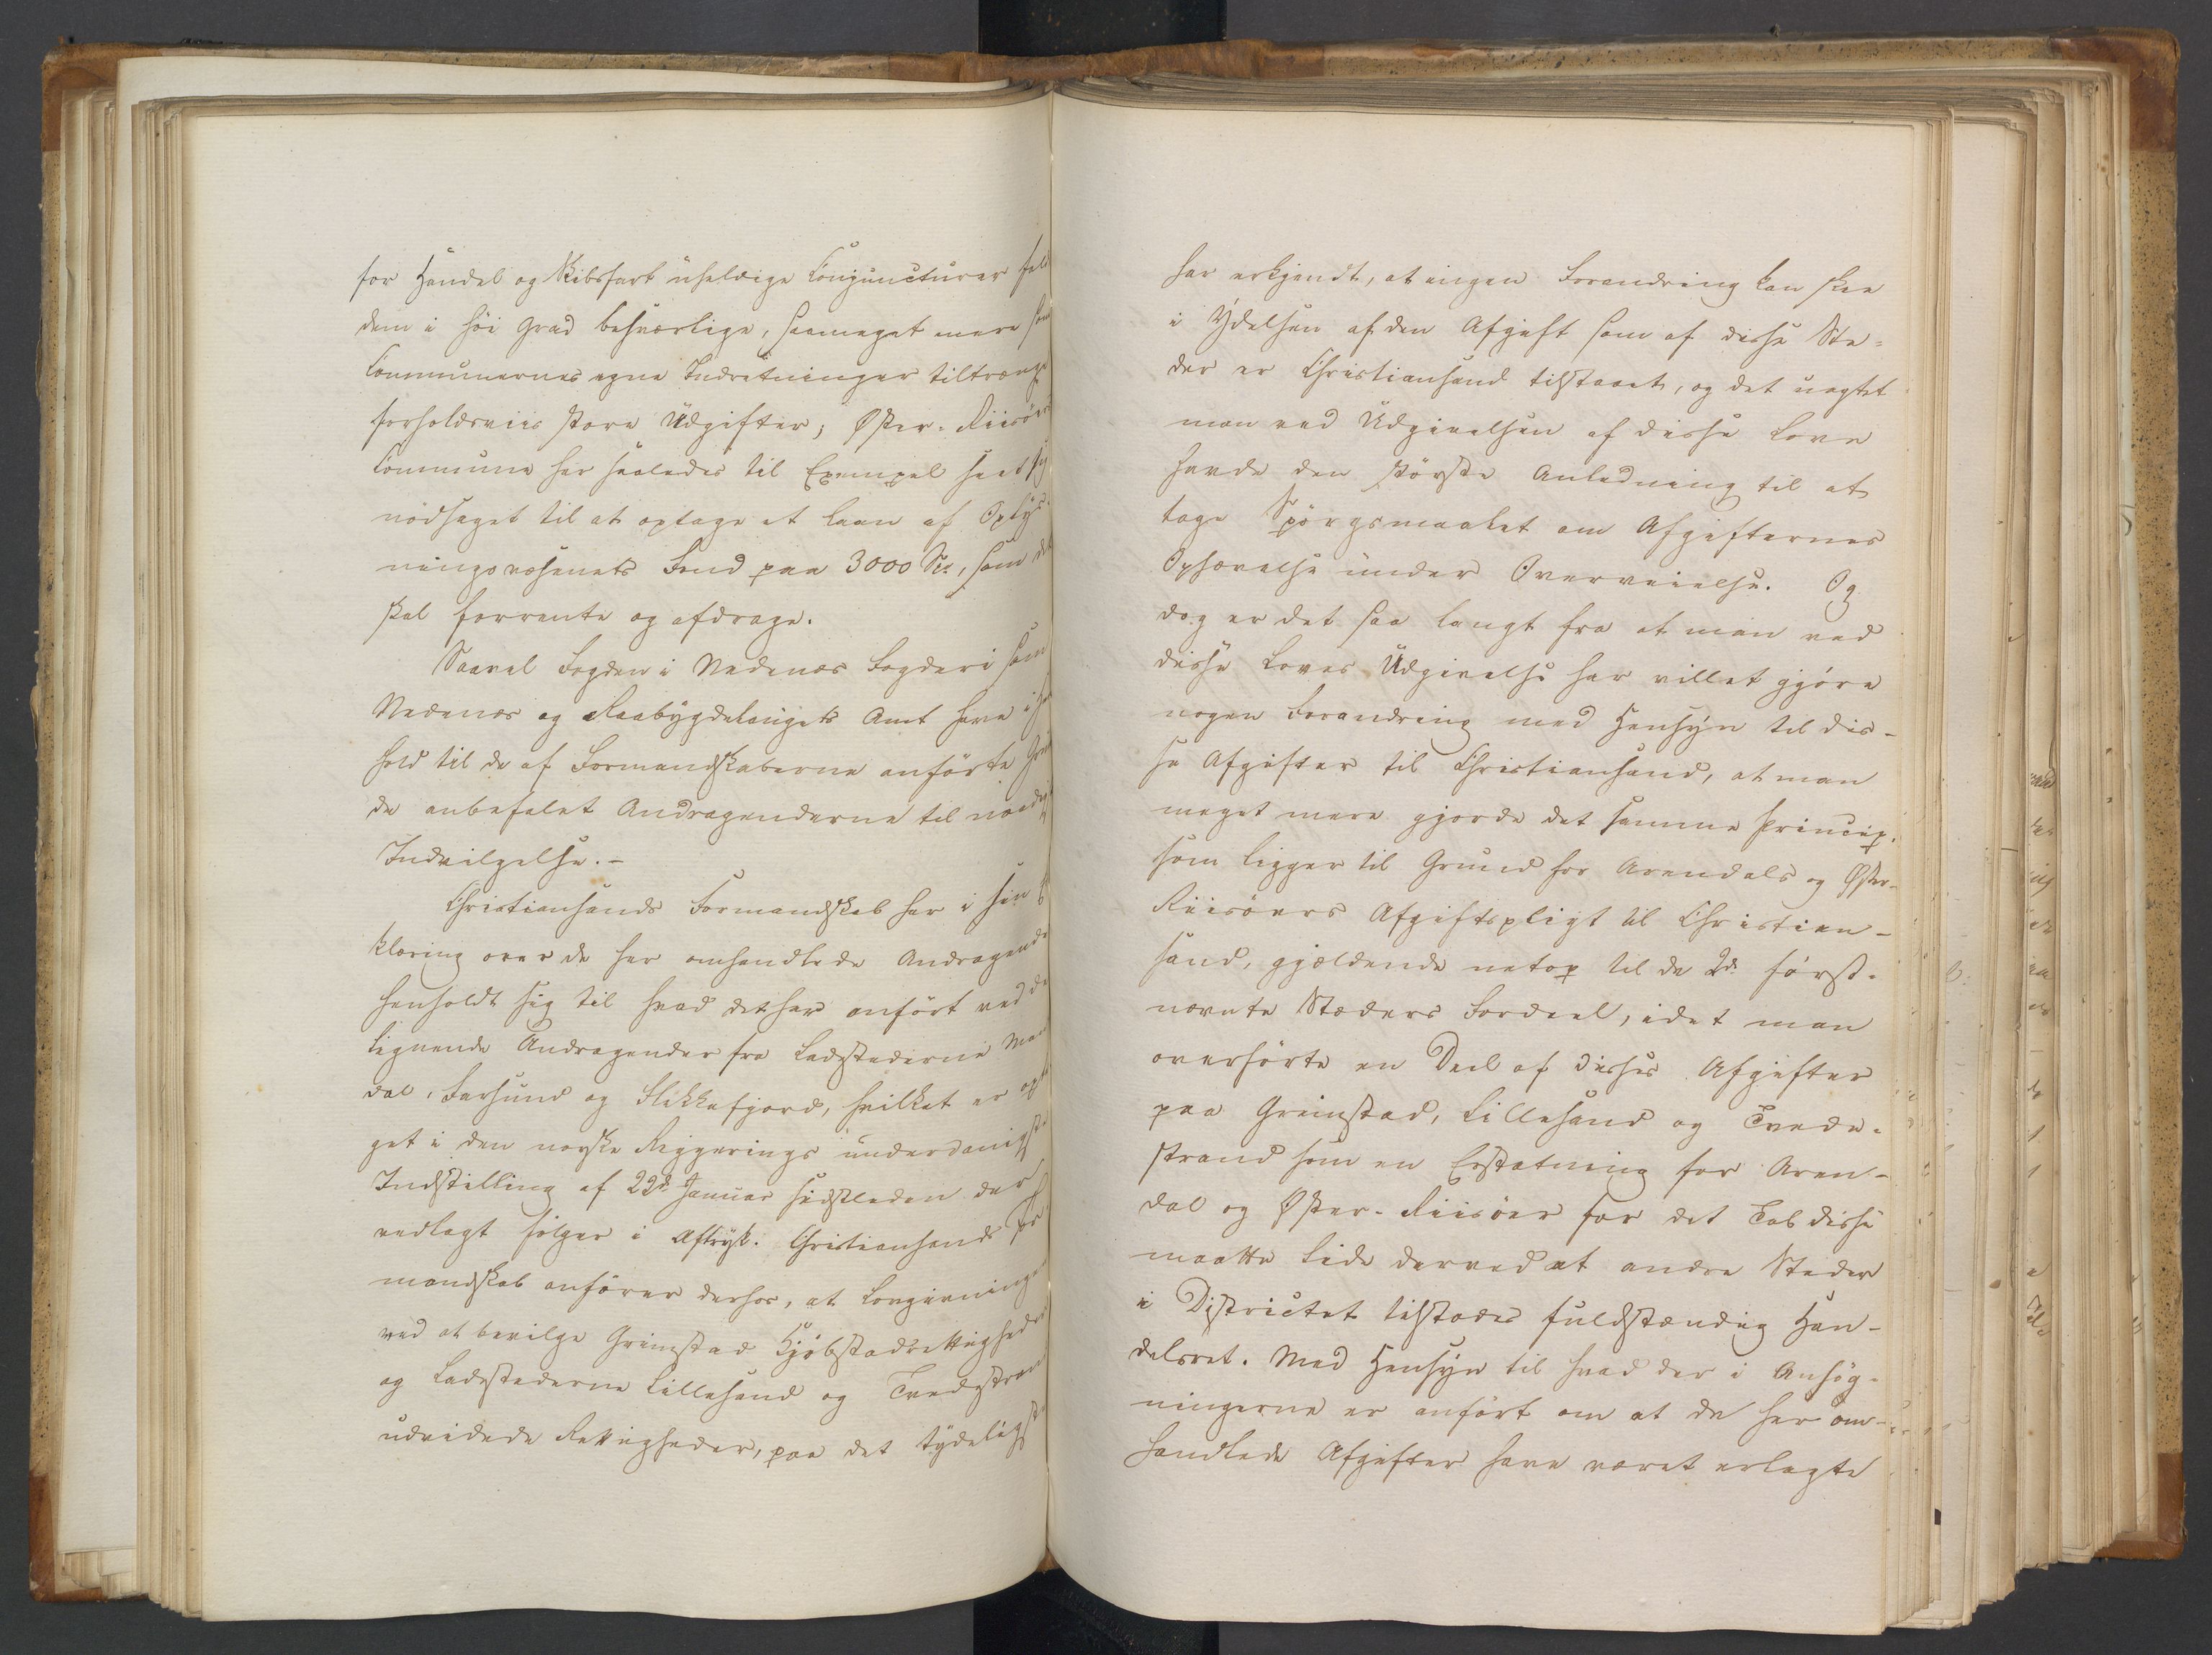 for Handel og Skibsfart uheldige Conjuncturer
dem i høi Grad besværlige, saameget mere som
Communernes egne Indretninger tiltrænge
forholdsviis store Udgifter; Øster-Riisøers
Commune har saaledes til Exempel seet sig
nødsaget til at optage et Laan af Oplys-
ningsvæsenets Fond paa 3000 Spd, som det
skal forrente og afdrage.
Saavel Fogden i Nedenæs Fogderi som
Nedenæs og Raabygdelaugets Amt have i Hen
hold til de af Formandskaberne anførte Grun
de anbefalet Andragenderne til naadigst
Indvilgelse.-
Christiansands Formandskab har i sin Er
klæring over de her omhandlede Andragender
henholdt sig til hvad det har anført ved de
lignende Andragender fra Ladestederne Man
dal, Farsund og Flekkefjord, hvilket er opta
get i den norske Regjerings underdanigste
Indstilling af 22de Januar sidstleden der
vedlagt følger i Aftryk. Christiansands For
mandskab anfører derhos, at Lovgivningen
ved at bevilge Grimstad Kjøbstadrettigheder
og Ladestederne Lillesand og Tvedestrand
udvidede Rettigheder, paa det tydeligste
har erkjendt, at ingen Forandring kan skee
i Ydelsen af den Afgift som af disse Ste-
der er Christiansand tilstaaet, og det uagtet
man ved Udgivelsen af disse Love
havde den største Anledning til at
tage Spørgsmaalet om Afgifternes
Ophævelse under Overveielse. Og
dog er det saa langt fra at man ved
disse Loves Udgivelse har villet gjøre
nogen Forandring med Hensyn til dis-
se Afgifter til Christiansand, at man
meget mere gjorde det samme Princip,
som ligger til Grund for Arendals og Øster-
Riisøers Afgiftspligt til Christian-
sand, gjældende netop til de 2de først-
nævnte Stæders Fordeel, idet man
overførte en Deel af disses Afgifter
paa Grimstad, Lillesand og Tvede-
strand som en Erstatning for Aren-
dal og Øster-Riisøer for det Tab disse
maatte lide derved at andre Steder
i Districtet tilstodes fuldstændig Han-
delsret. Med Hensyn til hvad der i Ansøg-
ningerne er anført om at de her om-
handlede Afgifter have været erlagte